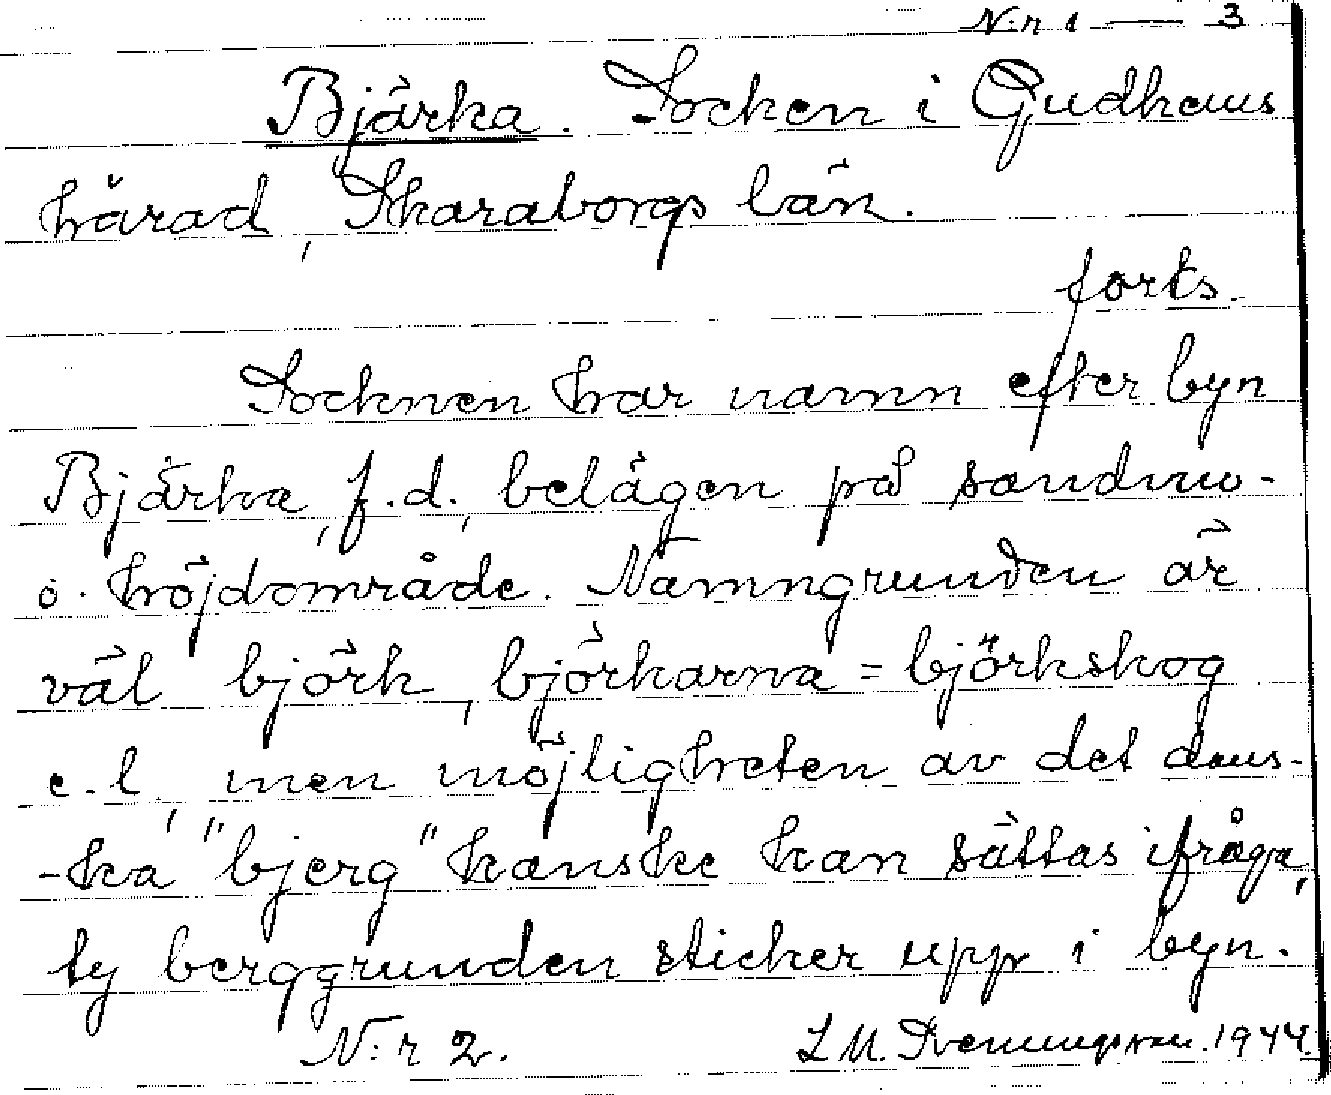 N:r 1 — 3
Bjärka. Socken i Gudhems
härad, Skaraborgs län.
forts.
Socknen har namn efter byn
Bjärka, f.d., belägen på sandmo-
o. höjdområde. Namngrunden är
väl björk, björkarna = björkskog
e.l., men möjligheten av det dans-
-ka "bjerg" kanske kan sättas ifråga,
ty berggrunden sticker upp i byn.
N:r 2. L.M. Svenungsson. 1944.